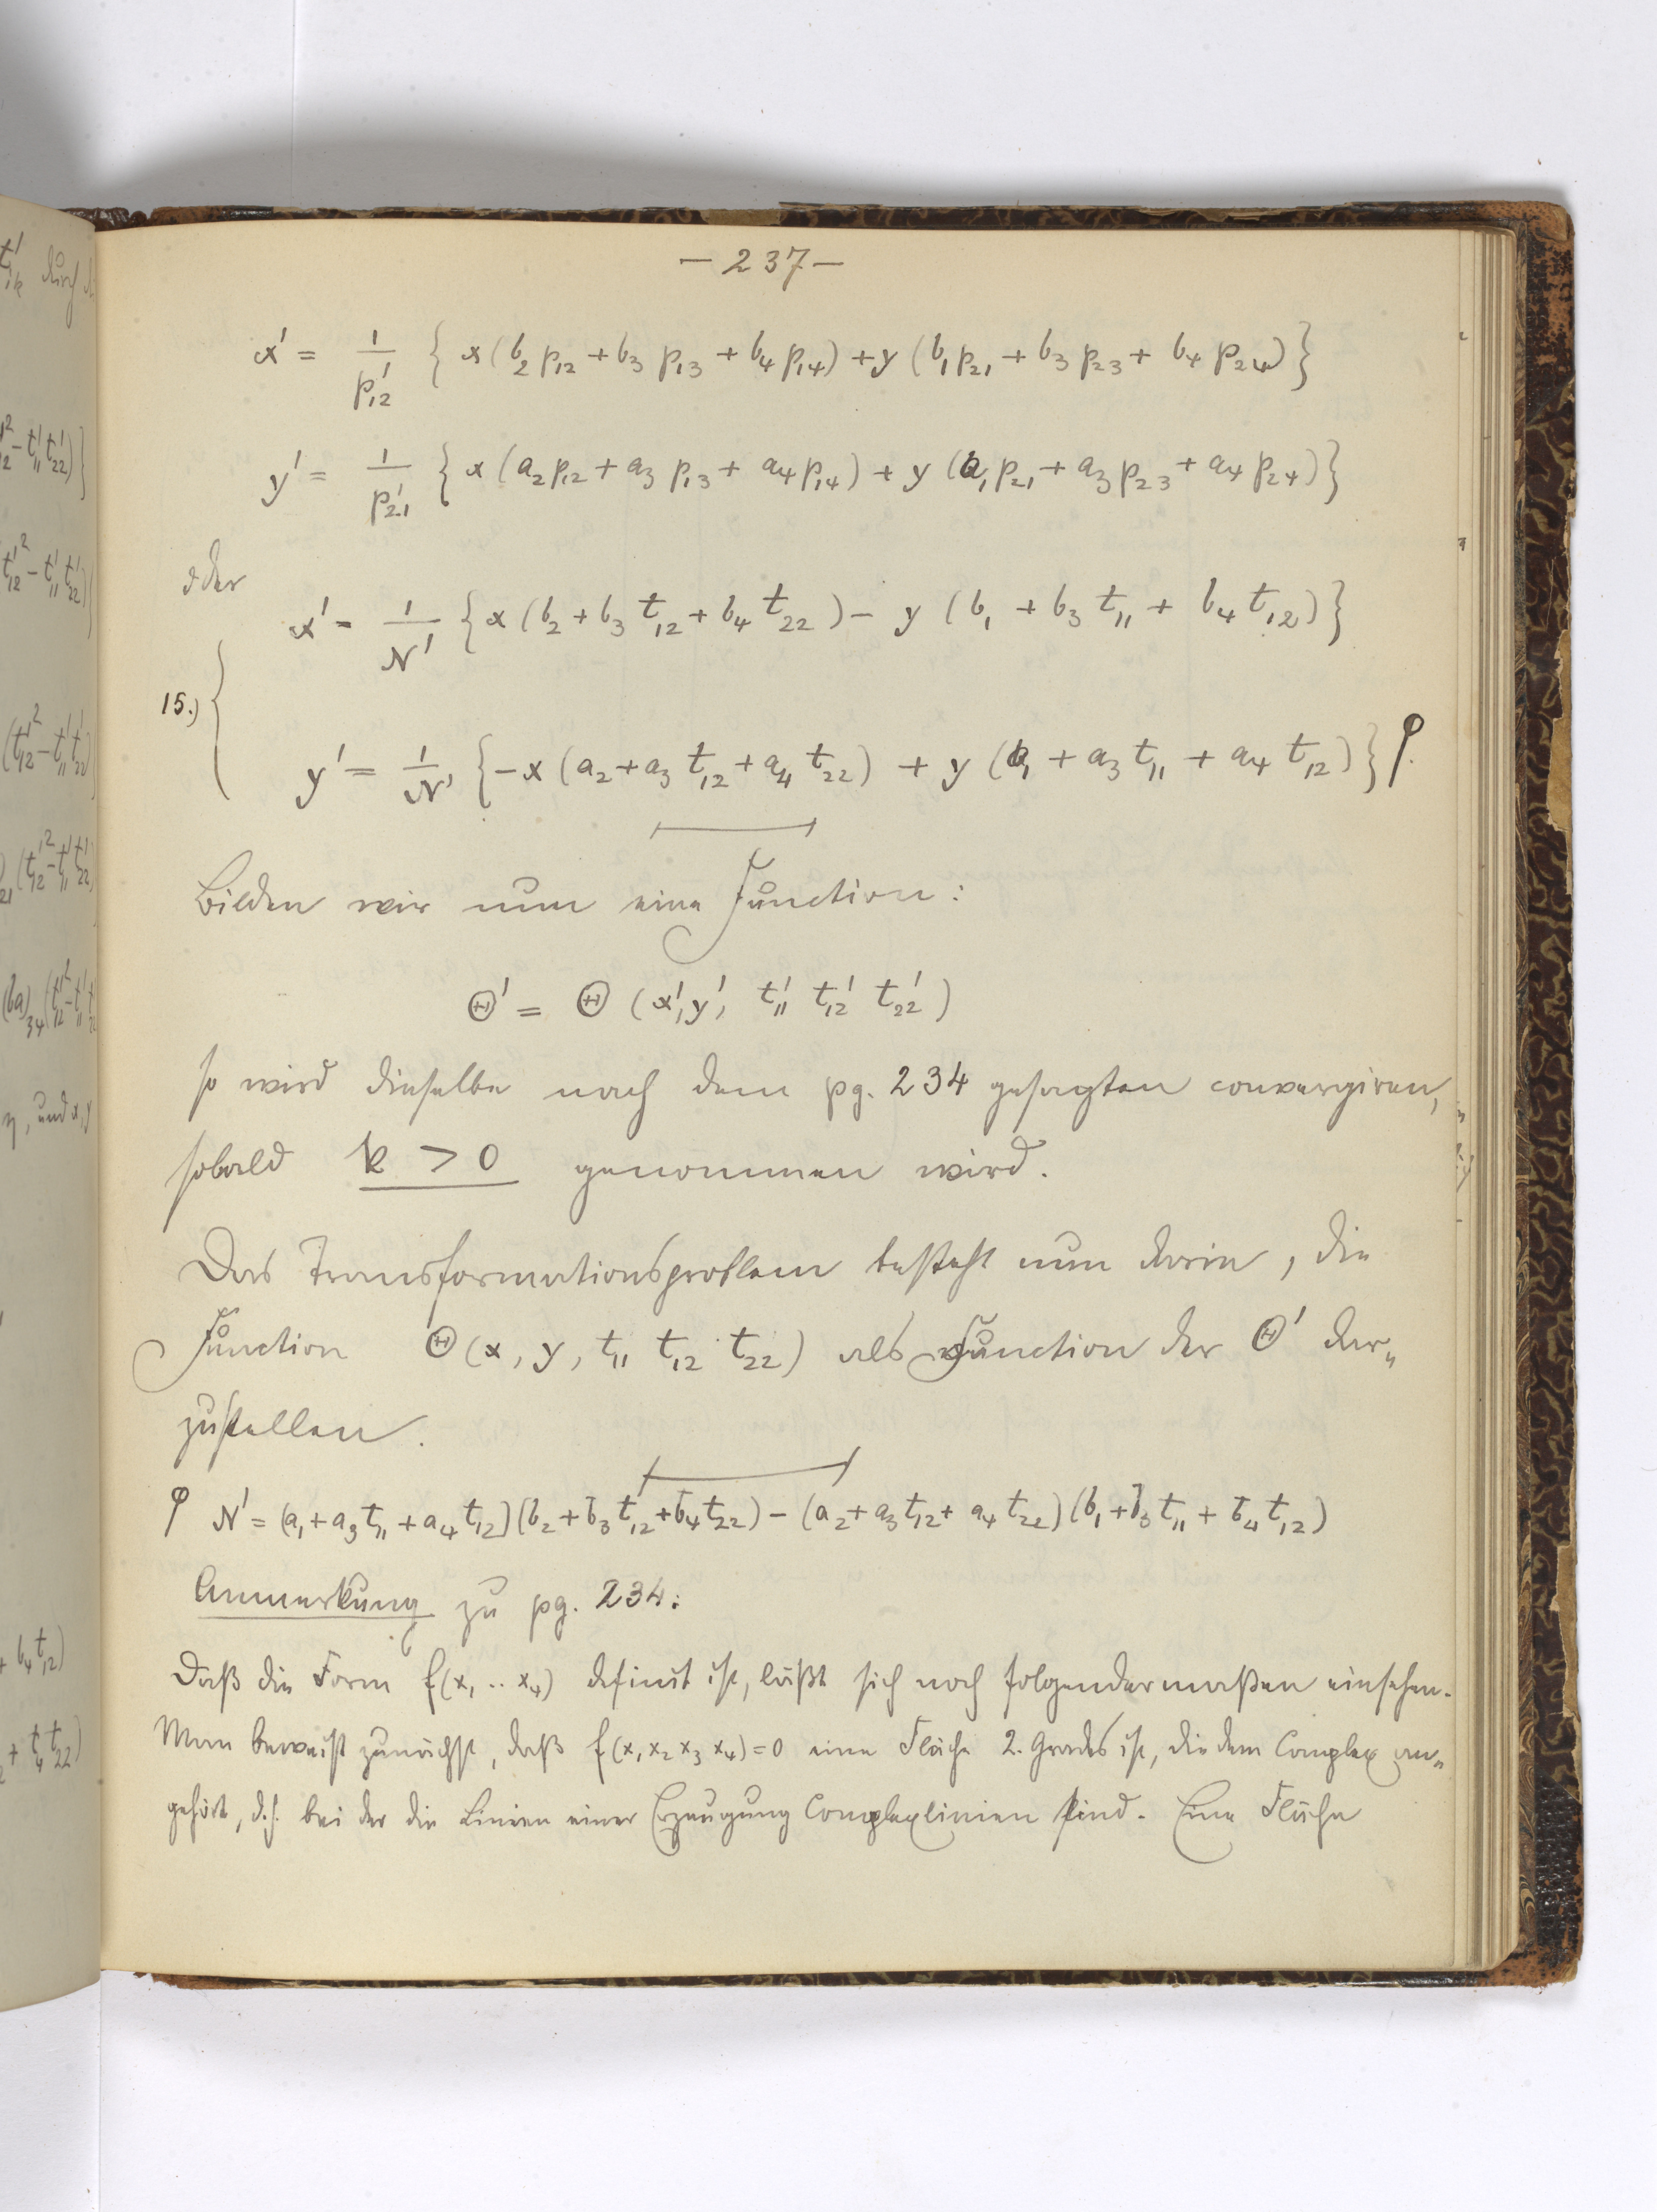 – 237 –
x' = 1/p'₁₂ { x (b₂ p₁₂ + b₃ p₁₃ + b₄ p₁₄) + y (b₁ p₂₁ + b₃ p₂₃ + b₄ p₂₄) }
y' = 1/p'₂₁ { x (a₂ p₁₂ + a₃ p₁₃ + a₄ p₁₄) + y (a₁ p₂₁ + a₃ p₂₃ + a₄ p₂₄) }
oder
x' = 1/N' { x (b₂ + b₃ t₁₂ + b₄ t₂₂) – y (b₁ + b₃ t₁₁ + b₄ t₁₂) }
15.) {
y' = 1/N' { – x (a₂ + a₃ t₁₂ + a₄ t₂₂) + y (a₁ + a₃ t₁₁ + a₄ t₁₂) } φ.
Bilden wir nun eine Function:
Θ' = Θ (x', y', t'₁₁ t'₁₂ t'₂₂)
so wird dieselbe nach dem pg. 234 gesagten convergiren,
sobald k > 0 genommen wird.
Das Transformationsproblem besteht nun darin, die
Function Θ (x, y, t₁₁ t₁₂ t₂₂) als Function der Θ' dar„
zustellen.
φ N' = (a₁ + a₃ t₁₁ + a₄ t₁₂) (b₂ + b₃ t₁₂ + b₄ t₂₂) – (a₂ + a₃ t₁₂ + a₄ t₂₂) (b₁ + b₃ t₁₁ + b₄ t₁₂)
Anmerkung zu pg. 234:
Daß die Form f(x₁ .. x₄) definit ist, läßt sich noch folgendermaßen einsehen.
Man beweist zunächst, daß f(x₁ x₂ x₃ x₄) = 0 eine Fläche 2. Grades ist, die dem Complex an„
gehört, d. h. bei der die Linien einer Erzeugung Complexlinien sind. Eine Fläche